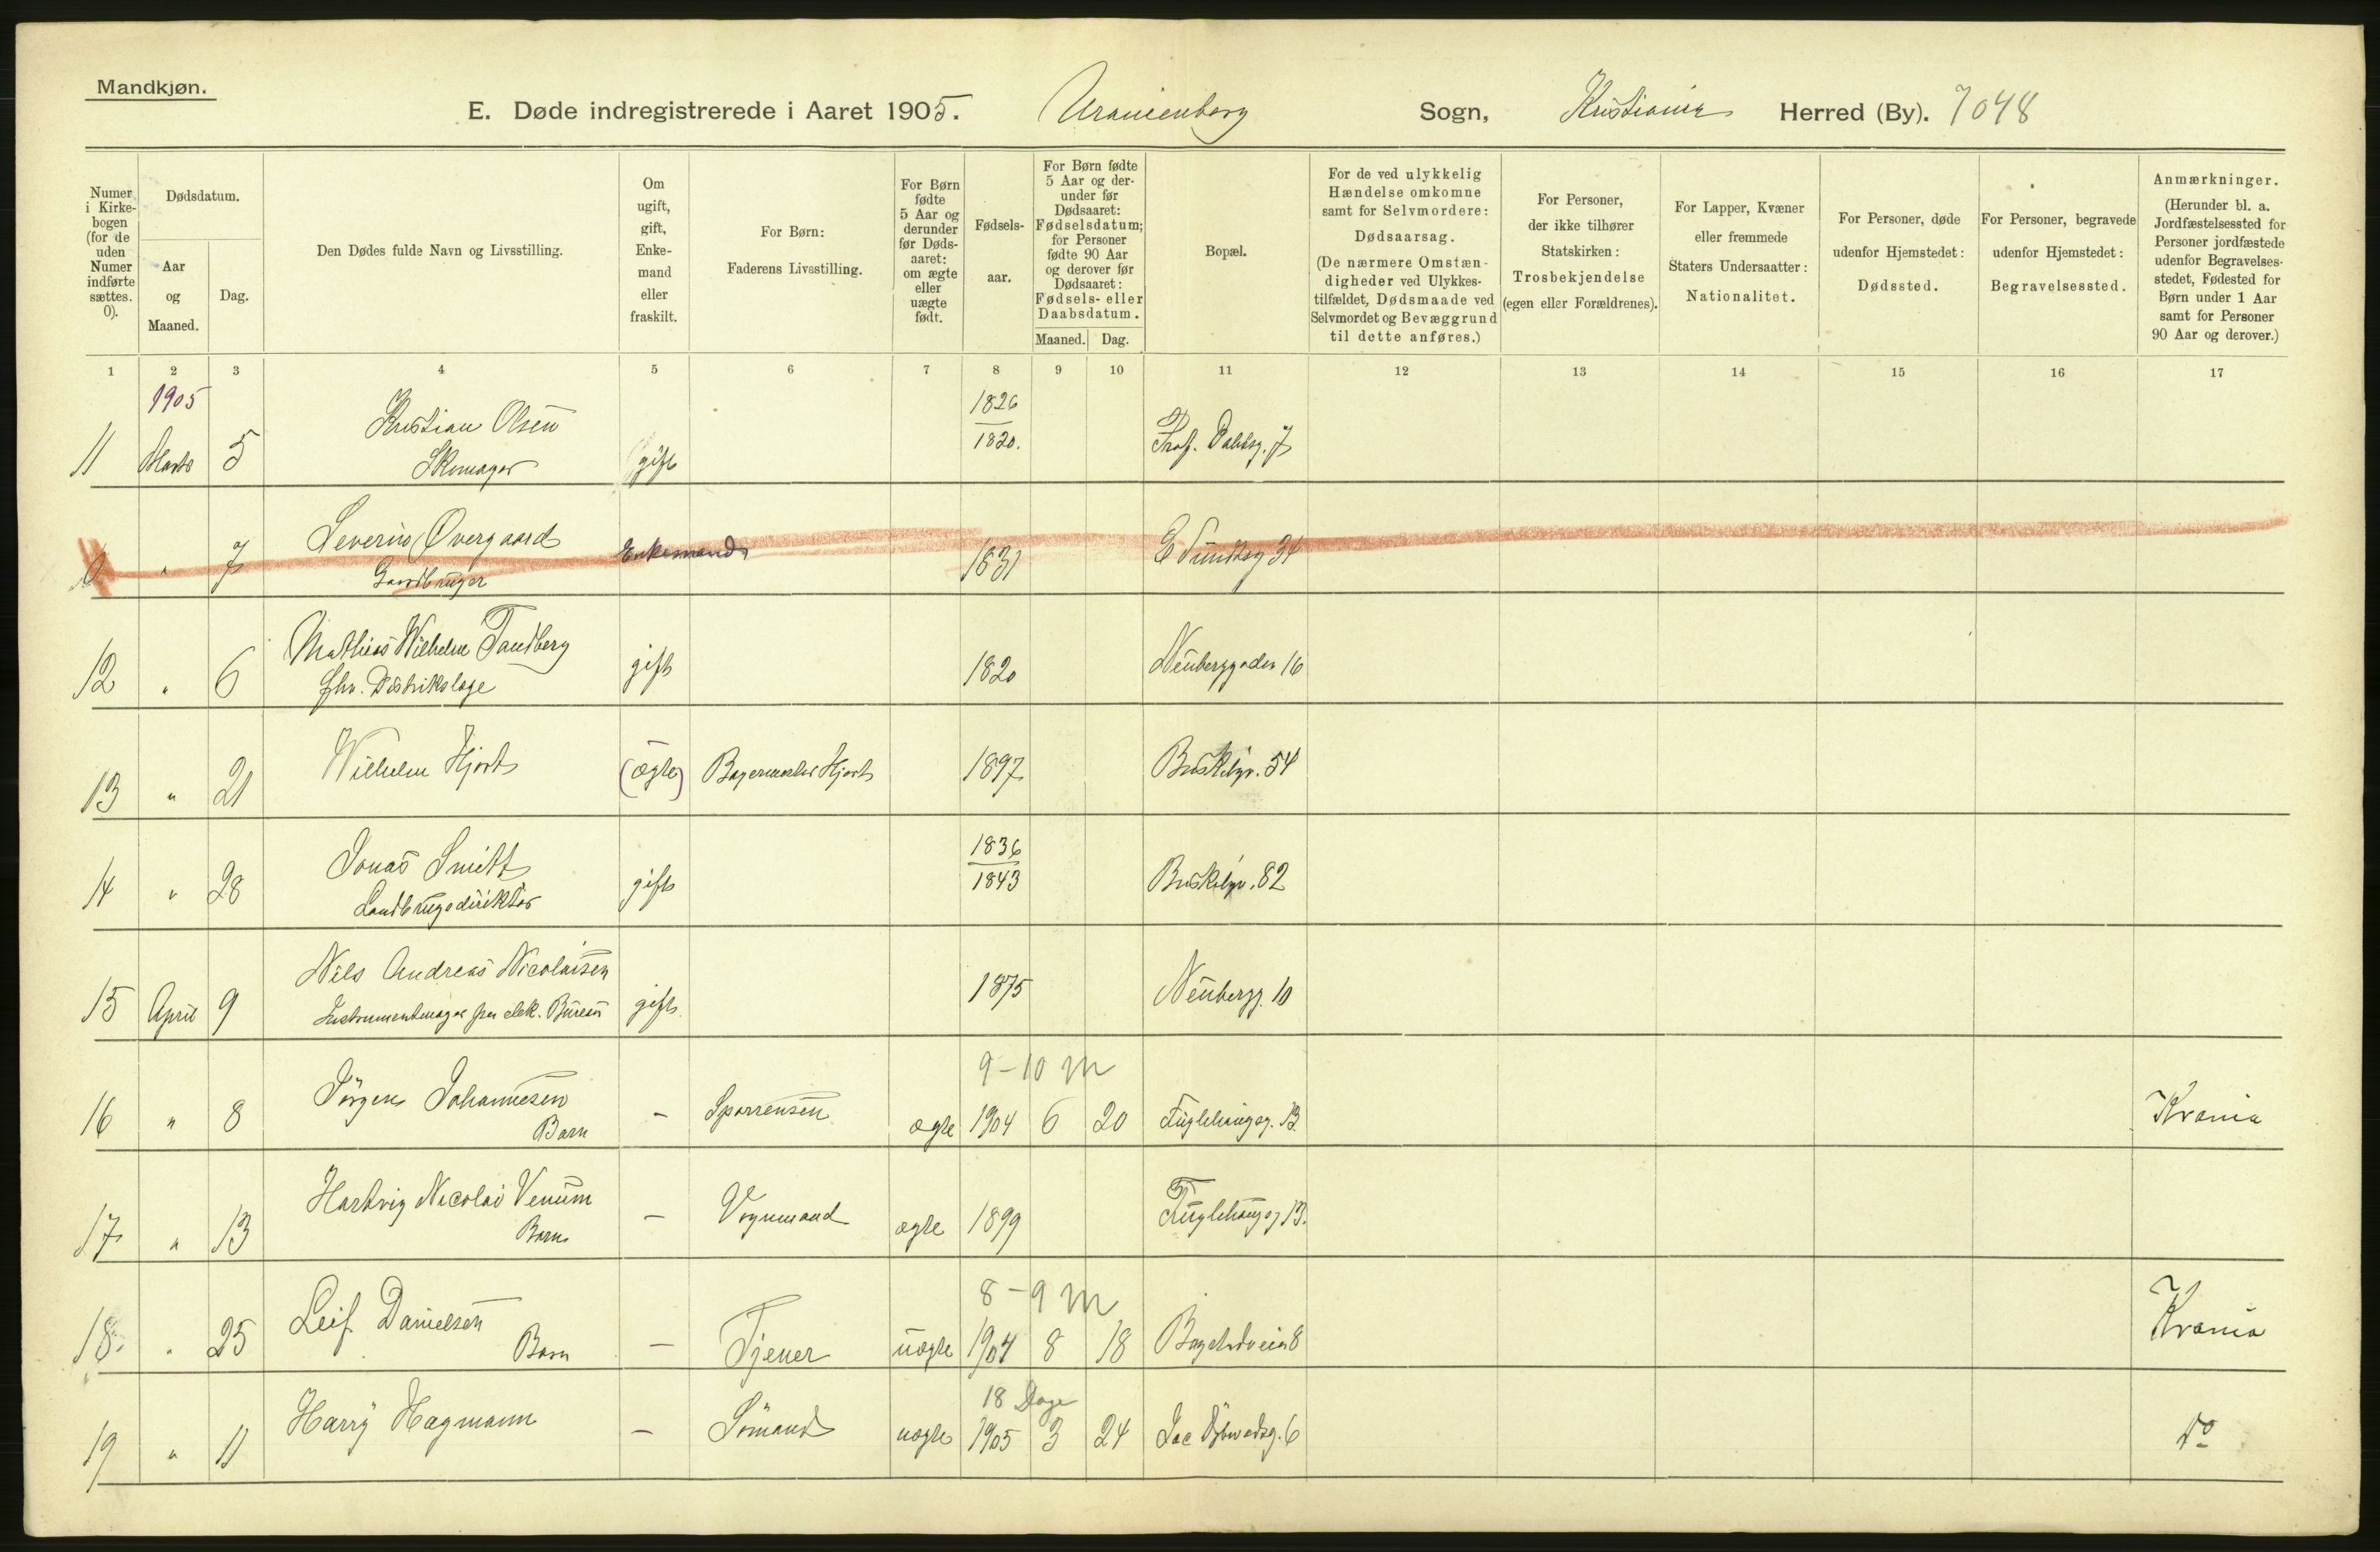 Mandkjøn.
E. Døde indregistrerede i Aaret 1905. Uranienborg Sogn, Kristiania Herred (By). 7048
Numer i Kirkebogen (for de uden Numer indførte sættes. 0).
Dødsdatum.
Aar og Maaned.
Dag.
Den Dødes fulde Navn og Livsstilling.
Om ugift, gift, Enkemand eller fraskilt.
For Børn: Faderens Livsstilling.
For Børn fødte 5 Aar og derunder før Dødsaaret: om ægte eller uægte født.
Fødselsaar.
For Børn fødte 5 Aar og derunder før Dødsaaret: Fødselsdatum; for Personer fødte 90 Aar og derover før Dødsaaret: Fødsels- eller Daabsdatum.
Maaned. Dag.
Bopæl.
For de ved ulykkelig Hændelse omkomne samt for Selvmordere: Dødsaarsag. (De nærmere Omstændigheder ved Ulykkestilfældet, Dødsmaade ved Selvmordet og Bevæggrund til dette anføres.)
For Personer, der ikke tilhører Statskirken: Trosbekjendelse (egen eller Forældrenes).
For Lapper, Kvæner eller fremmede Staters Undersaatter: Nationalitet.
For Personer, døde udenfor Hjemstedet: Dødssted.
For Personer, begravede udenfor Hjemstedet: Begravelsessted.
Anmærkninger. (Herunder bl. a. Jordfæstelsessted for Personer jordfæstede udenfor Begravelsesstedet, Fødested for Børn under 1 Aar samt for Personer 90 Aar og derover.)
1 2 3 4 5 6 7 8 9 10 11 12 13 14 15 16 17
1905
11 Marts 5 Kristian Olsen gift 1826 1820. Prof. Dahlsg. 7
Skomager
0 " 7 Severin Overgaard Enkemand 1831 E Sundtsg 34
Gaardbruger
12 " 6 Mathias Wilhelm Tandberg gift 1820 Neuberggaden 16
fhv. Distrikslæge
13 " 21 Wilhelm Hjort (ægte) Bagermester Hjort 1897 Briskebyv. 54
14 " 28 Jonas Smitt gift 1836 1843 Briskebyv. 82
Landbrugsdirektør
15 April 9 Nils Andreas Nicolaisen gift 1875 Neubergg. 10
Instrumentmager paa elek. Bureau
9-10 M
16 " 8 Jörgen Johannesen – ægte 1904 6 20 Fuglehaugsg. 13. Krania
Barn
17 " 13 Hartvig Nicolai Venum – Vognmand ægte 1899 Fuglehaugsg 13.
Barn
8-9 M
18 " 25 Leif Danielsen – Tjener uægte 1904 8 18 Bogstadveien 8 Krania
Barn
18 Dage
19 " 11 Harry Hagmann – Sömand uægte 1905 3 24 Jac Dybwadsg. 6 do